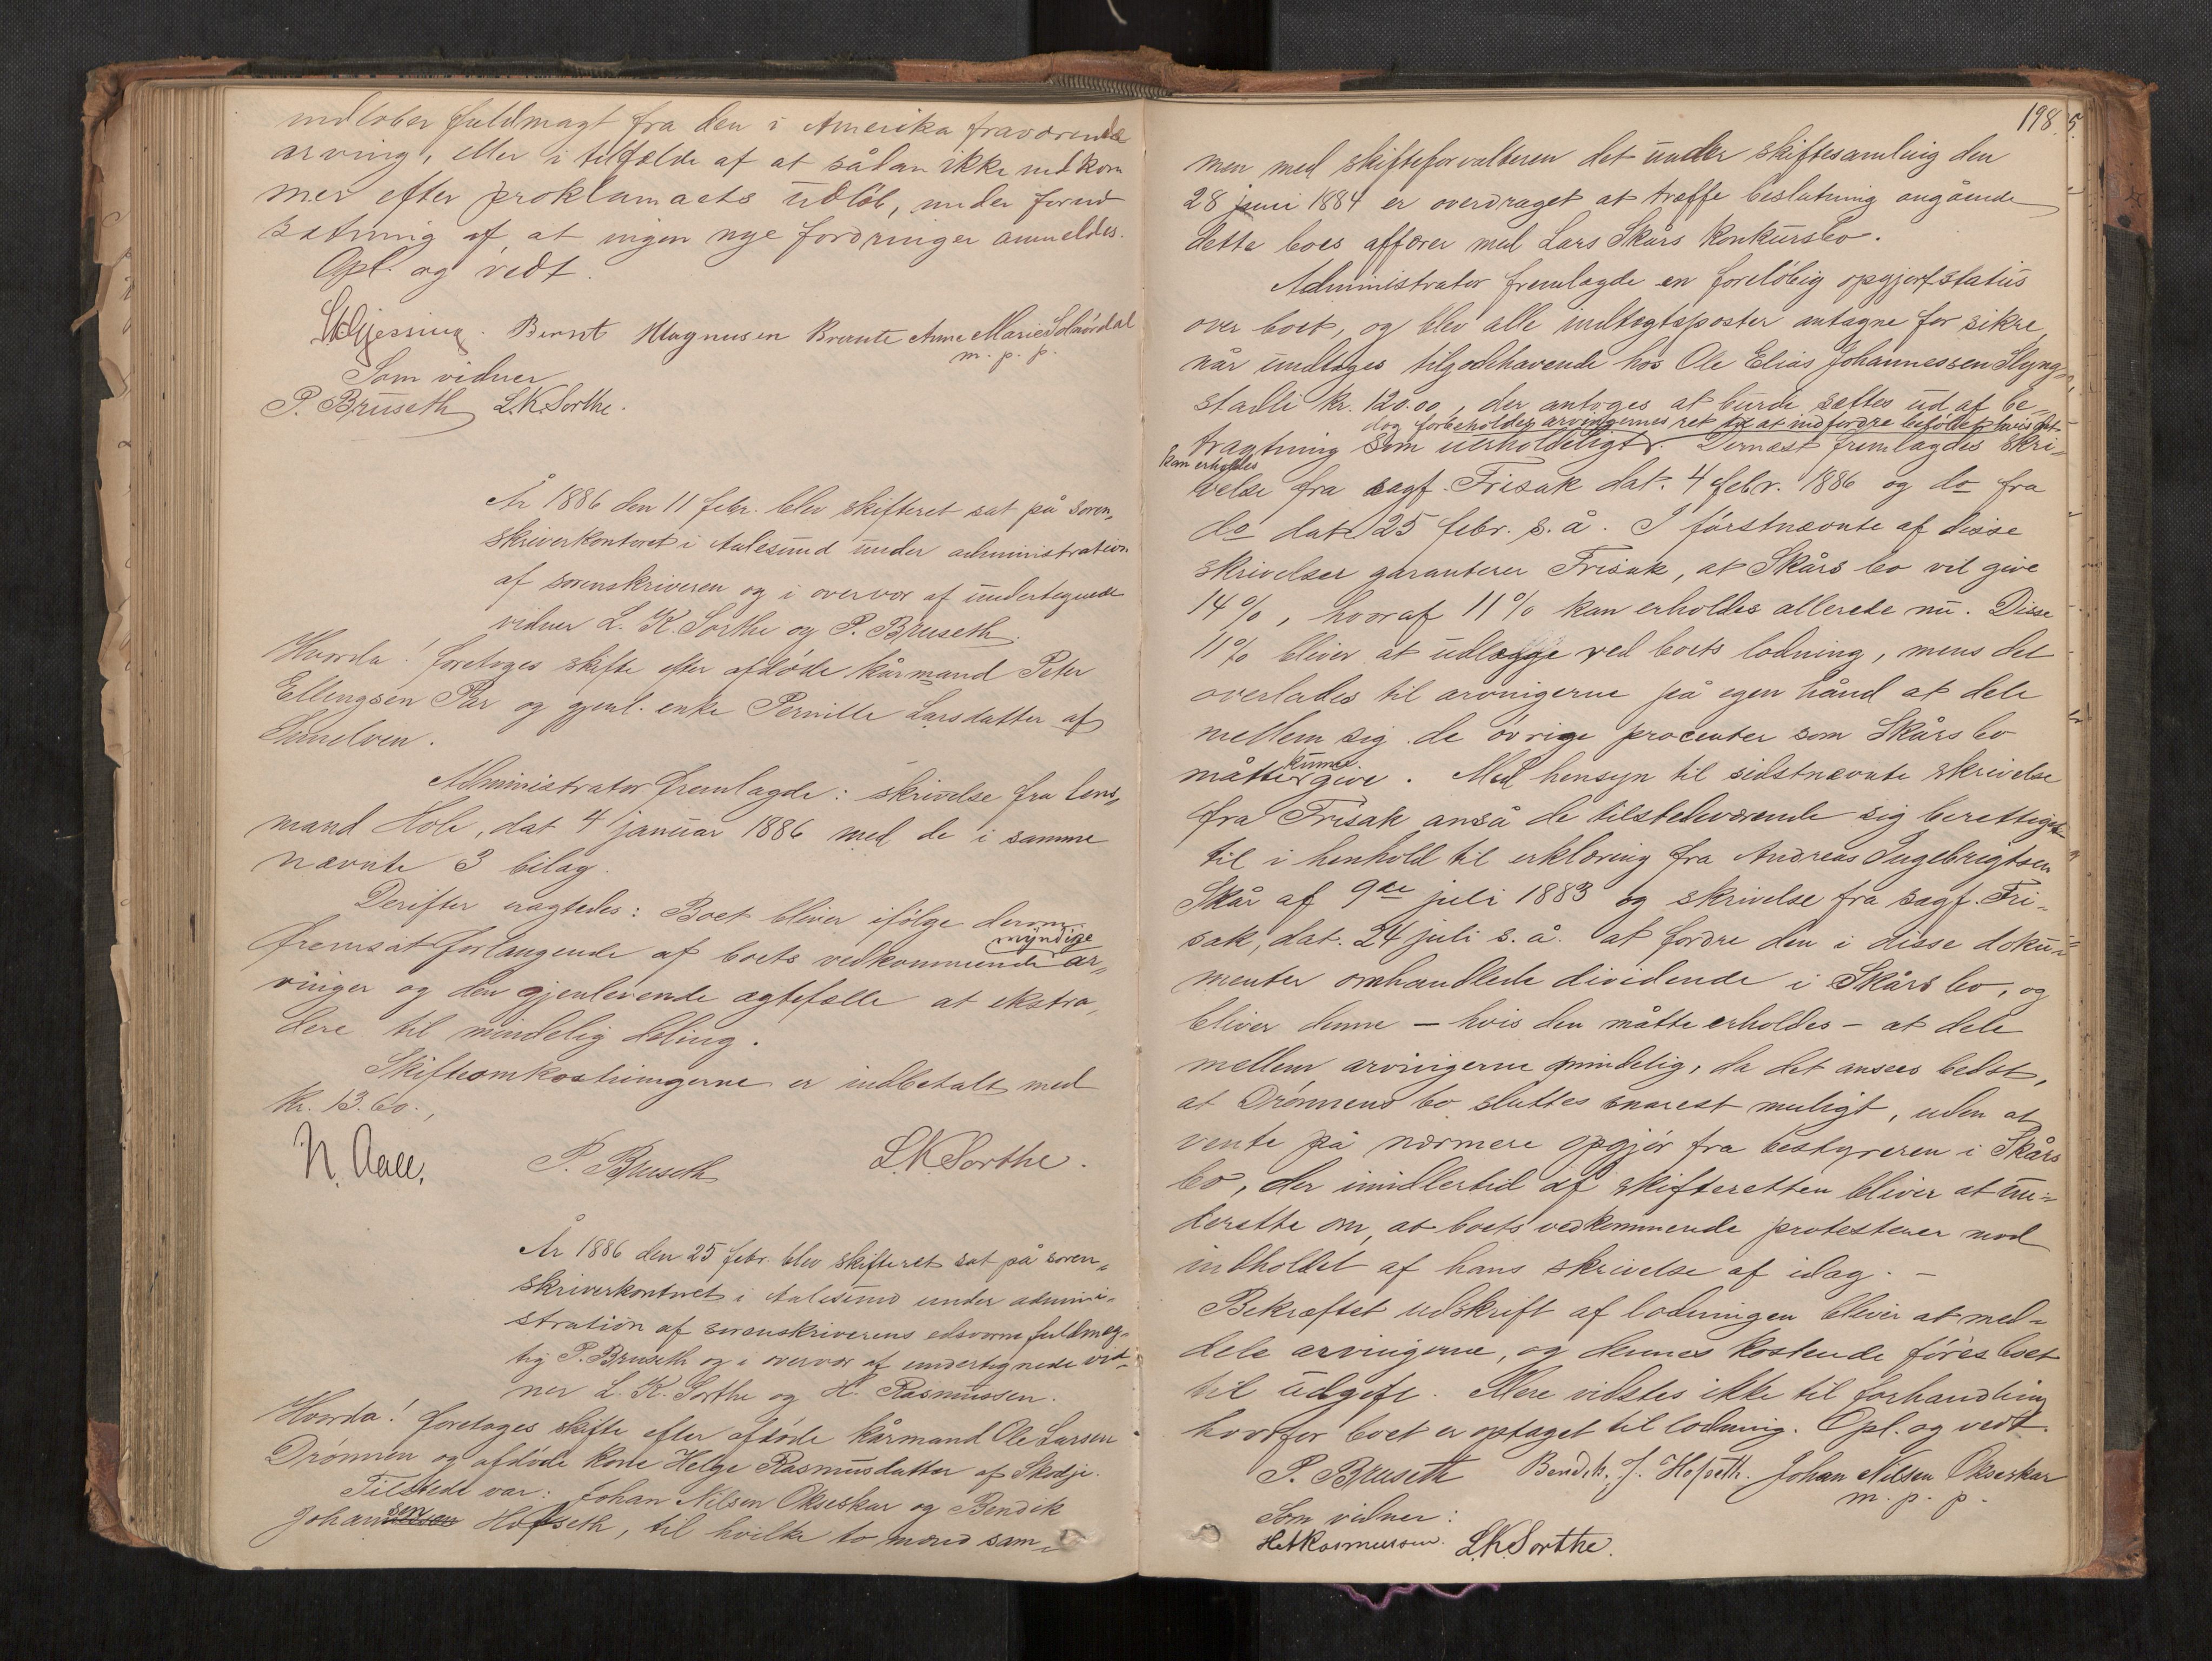 indløber fuldmagt fra den i Amerika fraværende
arving, eller i tilfælde af at sådan ikke indkom
mer efter proklamaets udløb, under forud
sætning af, at ingen nye fordringer anmeldes.
Opl. og vedt.
Bernt Magnusen Brunte Anne Marie
m. p. p.
Som vidner
P. Bruseth L.K. Sorthe.
År 1886 den 11 febr. blev skifteret sat på soren-
skriverkontoret i Aalesund under administration
af sorenskriveren og i overvær af undertegnede
vidner L. K. Sorthe og P. Bruseth.
Hvorda! foretoges skifte efter afdøde kårmand Peter
Ellengsen og gjenl. enke Pernille Larsdatter af
Sunelven.
Administrator fremlagde: skrivelse fra lens-
mand Hole, dat 4 januar 1886 med de i samme
nævnte 3 bilag.
Derefter eragtedes: Boet bliver ifølge derom
fremsat forlangende af boets vedkommende myndige ar-
vinger og den gjenlevende ægtefælle at ekstra-
dere til mindelig deling.
Skifteomkostningerne er indbetalt med
Kr. 13.60.,
N. Aall. P. Bruseth L.K. Sorthe.
År 1886 den 25 febr. blev skifteret sat på soren-
skriverkontoret i Aalesund under admini-
stration af sorenskriverens edsvorne fuldmæg-
tig P. Bruseth og i overvær af undertegnede vid-
ner L. K. Sorthe og H. Rasmussen.
Hvorda! foretoges skifte efter afdøde kårmand Ole Larsen
Drønnen og afdøde kone Helge Rasmusdatter af Skodje.
Tilstede var: Johan Nilsen Okseskar og Bendik
Johansen Hofseth, til hvilke to mænd sam-
198
men med skifteforvalteren det under skiftesamling den
28 juni 1884 er overdraget at træffe beslutning angående
dette boes affærer med Lars Skårs konkursbo.
Administrator fremlagde en foreløbig opgjørsstatus
over boet, og blev alle indtægtsposter antagne for sikre,
når undtages tilgodehavende hos Ole Elias Johannessen Slyng-
stadli kr. 120.00, der antoges at burde sættes ud af be-
dog forbeholdes arvingernes ret til at indfordre beløbet hvis det
tragtning som uerholdeligt. Dernæst fremlagdes skri-
kan erholdes
velse fra sagf. Frisak dat. 4 febr. 1886 og do fra
do dat 25 febr. s. å. I førstnævnte af disse
skrivelser garanterer Frisak, at Skårs bo vil give
14%, hvoraf 11% kan erholdes allerede nu. Disse
11% bliver at udlægge ved boets lodning, mens det
overlades til arvingerne på egen hånd at dele
mellem sig de øvrige procenter som Skårs bo
måtte kunne give. Med hensyn til sidstnævnte skrivelse
fra Frisak anså de tilstedeværende sig berettiget
til i henhold til erklæring fra Andreas Ingebrigtsen
Skår af 9de juli 1883 og skrivelse fra sagf. Fri-
sak, dat. 24 juli s. å. at fordre den i disse doku-
menter omhandlede dividende i Skårs bo, og
bliver denne - hvis den måtte erholdes - at dele
mellem arvingerne mindelig, da det ansees bedst,
at Drønnens bo sluttes snarest muligt, uden at
vente på nærmere opgjør fra bestyreren i Skårs
bo, der imidlertid af skifteretten bliver at un-
derrette om, at boets vedkommende protesterer mod
indholdet af hans skrivelse af idag. -
Bekræftet udskrift af lodningen bliver at med-
dele arvingerne, og dennes kostende føres boet
til udgift. Mere vidstes ikke til forhandling
hvorfor boet er optaget til lodning. Opl. og vedt.
P. Bruseth Bendik. J. Hofseth. Johan Nilsen Okseskar
m. p. p.
Som vidner:
H. Rasmussen. L.K. Sorthe.